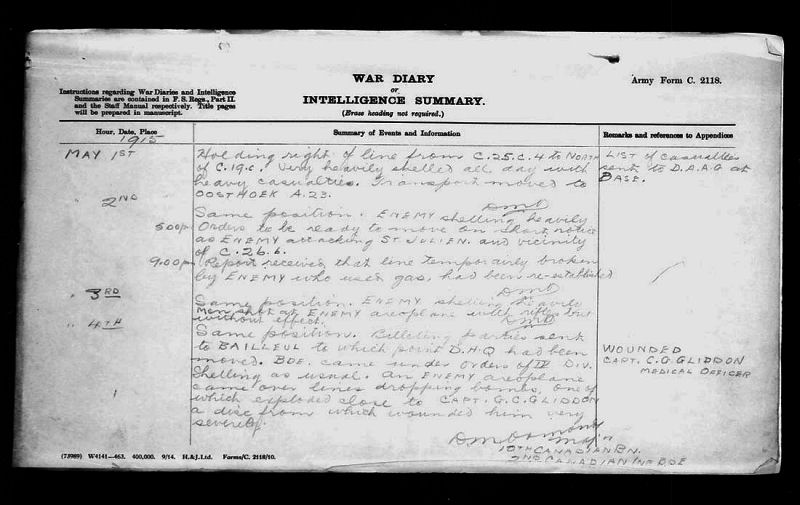 WAR DIARY
or
INTELLIGENCE SUMMARY.
(Erase heading not required.)
Army Form C. 2118.
Instructions regarding War Diaries and Intelligence
Summaries are contained in F. S. Regs., Part II.
and the Staff Manual respectively. Title pages
will be prepared in manuscript.
Hour, Date, Place
Summary of Events and Information
Remarks and references to Appendices
1915
MAY 1ST
Holding right of line from C.25.C.4 to NORTH
of C.19.c. Very heavily shelled all day with
heavy casualties. Transport moved to
OOSTHOEK A.23.
LIST of casualties
sent to D.A.A.G at
BASE.
DMO
" 2ND
Same position. ENEMY shelling heavily
5.00pm Orders to be ready to move on short notice
as ENEMY attacking ST JULIEN. and vicinity
of C.26.b.
9.00pm Report received that line temporarily broken
by ENEMY who used gas, had been re-established
DMO
" 3RD
Same position. ENEMY shelling heavily
Men shot at ENEMY aeroplane with rifles but
without effect.
DMO
" 4TH
Same position. Billeting parties sent
to BAILLEUL to which point D.H.Q had been
moved. BDE. came under orders of IV DIV.
Shelling as usual. An ENEMY aeroplane
came over lines dropping bombs, one of
which exploded close to CAPT. G.C. GLIDDON
a disc from which wounded him very
severely.
WOUNDED
CAPT. C.G GLIDDON
MEDICAL OFFICER
DMOrmond
Major
10TH CANADIAN BN.
2ND CANADIAN INF BDE
(73989) W4141—463. 400,000. 9/14. H.&J.Ltd. Forms/C. 2118/10.